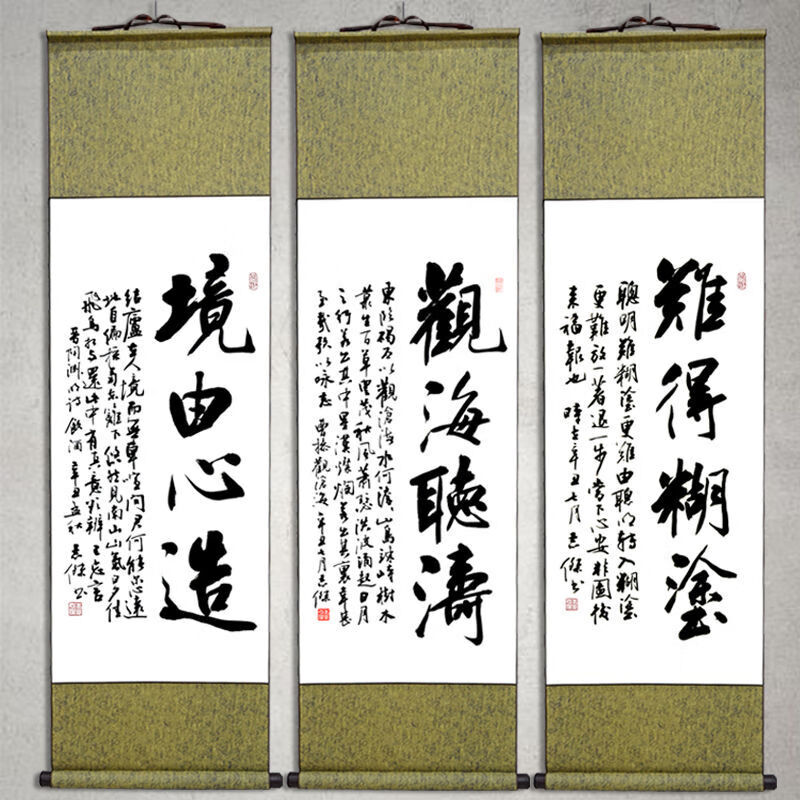 難得糊塗
聰明難糊塗更難由聰明轉入糊塗
更難放一著退一步當下心安非圖後
來福報也 時在辛丑七月志傑書
觀海聽濤
東臨碣石以觀滄海水何澹山島竦峙樹木
叢生百草豐茂秋風蕭瑟洪波涌起日月
之行若出其中星漢燦爛若出其裏幸甚
至哉歌以咏志 曹操觀滄海 辛丑七月志傑
境由心造
結廬在人境而無車喧問君何能尔心遠
地自偏採菊東籬下悠然見南山山氣日夕佳
飛鳥相與還此中有真意欲辨已忘言
晉陶淵明詩飲酒 辛丑孟秋 志傑書